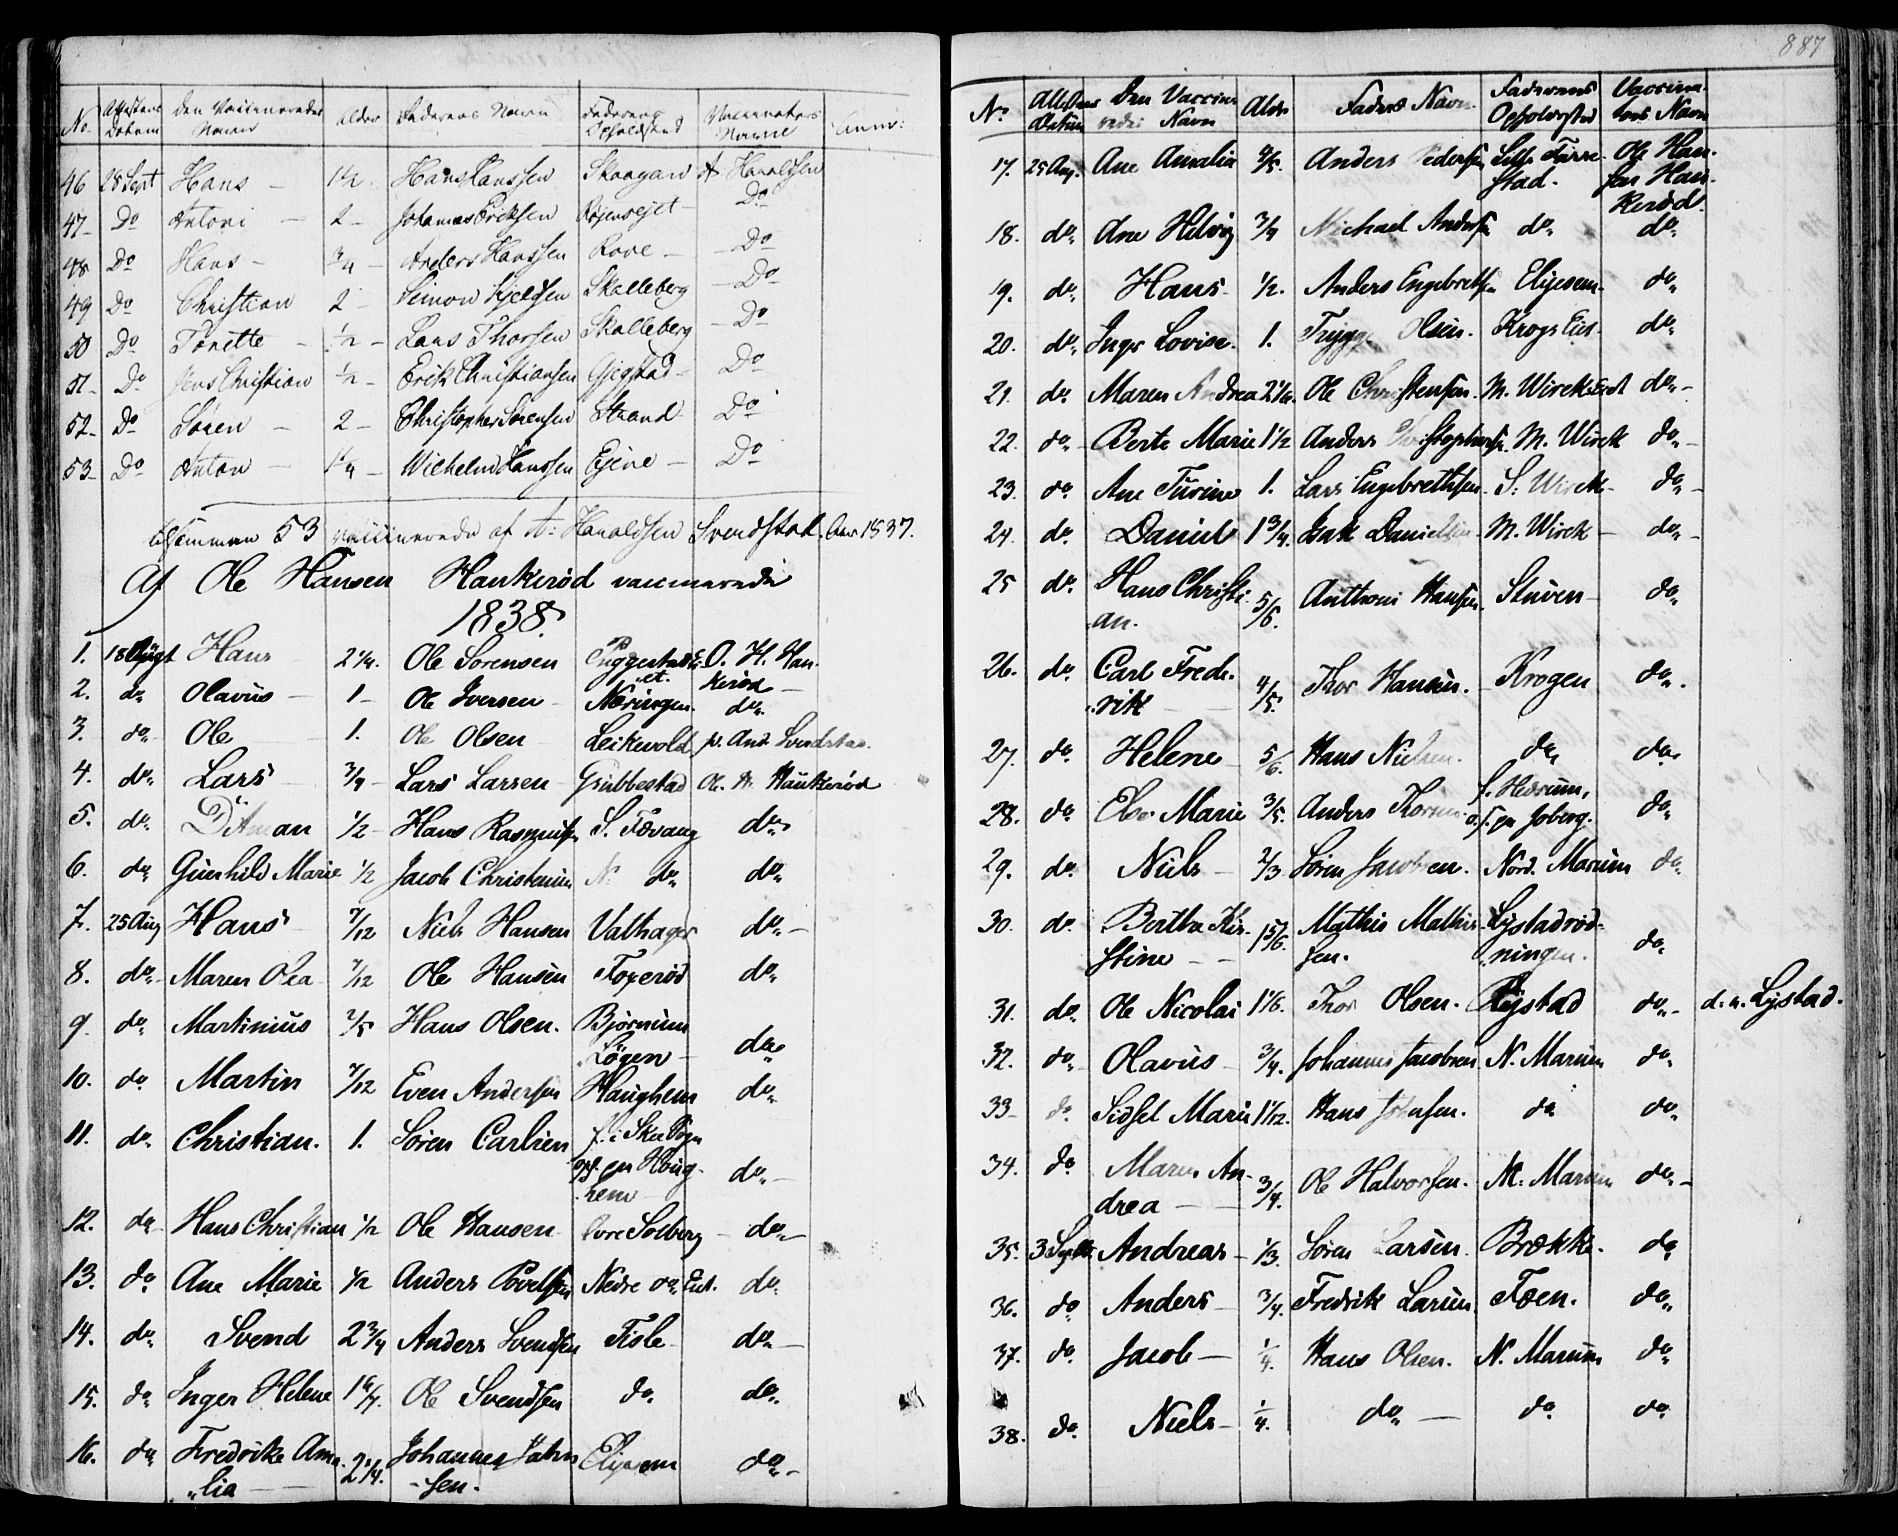 No. Attestens Datum den Vaccineredes Navn Alder Faderens Navn Faderens Opholdsted Vaccinators Navne Anm:
46 28 Sept Hans 1½ Hans Hanssen Skaagan A Haraldsen
47 Do Antoni 2 Johannes Eriksen Do
48 Do Hans ¾ Anders Hanssen Rove Do
49 Do Christian 2 Simon Kjeldsen Skalleberg Do
50 Do Tonette ½ Lars Thorsen Skalleberg Do
51 Do Jens Christian ½ Erik Christiansen Gjegstad Do
52 Do Søren 2 Christopher Sørensen Strand Do
53 Do Anton 1¼ Wilhelm Hanssen Ejene Do
Tilsammen 53 vaccinerede af A: Haraldsen Svendstad. Aar 1837.
Af Ole Hansen Haukerød vaccinerede
1838.
1. 18 Augt Hans 2¼ Ole Sørensen Puggestad Ei- O. H. Hau-
et. kerød
2. do Olavus 1 Ole Iversen Næringen. do
3. do Ole 1. Ole Olsen Leikevold p. And. Svendstad.
4. do Lars ¾ Lars Larsen Grubbestad Ole H. Haukerød
5. do Ditman ½ Hans Rasmusen S. Fævang do
6. do Gunhild Marie ½ Jacob Christensen N. do do
7. 25 Aug Hans 7/12 Niels Hansen Valhager do
8. do Maren Olea 7/12 Ole Hansen Foxerød do
9. do Martinius 2/5 Hans Olsen. Bjørnum
Løgen do
10. do Martin 7/12 Even Andersen Haughem do
11. do Christian. 1. Søren Carlsen f. i Skee Sogn
opf. på Houg-
hem do
12. do Hans Christian ½ Ole Hansen Øvre Solberg do
13. do Ane Marie ½ Anders Povelsen Nedre do Eiet. do
14. do Svend 2¾ Anders Svendsen Fisle do
15. do Inger Helene 1 6/7. Ole Svendsen do do
16. do Fredrike Ama- 2¼. Johannes Jahn- Elijesem do
lia sen.
887
No. Attestens Datum Den Vaccineredes Navn Alder Faders Navn Faderens Opholdsted Vaccinators Navn
17. 25 Aug. Ane Amalia 4/5. Anders Pedersen Lille Farre- Ole Han-
stad. sen Hau-
kerød
18. do Ane Helvig ¾ Michael Andersen do do
19. do Hans ½. Anders Engebretsen Elijesem do
20. do Inger Lovise. 1. Trygge Olsen. Krogs Eiet. do
21. do Maren Andrea 2 1/6. Ole Christensen. M. Wirek Eiet do
22. do Berte Marie 1½ Anders Christophersen. M. Wirek do
23. do Ane Turine 1. Lars Engebrethsen S. Wirek do
24. do Daniel 1¾. Isak Danielsen M. Wirek do
25 do Hans Christi-
an. 5/6. Anthoni Hansen. Stuven do
26. do Carl Fred-
rik 4/5. Thor Hansen. Krogen do
27. do Helene 5/6. Hans Nielsen. do do
28. do Else Marie 3/5. Anders Thorsen f. Hedrum,
o. f. på Joberg. do
29. do Niels 2/3 Søren Jacobsen. Nord. Marum do
30. do Berthe Kir- 1 5/6. Mathis Mathis- Lystadrød-
stine sen. ningen. do
31. do Ole Nicolai 1 1/6. Thor Olsen. Rystad do d. n. Lystad.
32. do Olavus ¾. Johannes Jacobsen N. Marum do
33 do Sidsel Marie 1 1/12. Hans Johnsen. do do
34. do Maren An-
drea ¾. Ole Halvorsen. N. Marum do
35. 3 Septb. Andreas 1/3. Søren Larsen. Brække. do
36. do Anders ¾. Fredrik Larsen Foen. do
37. do Jacob ¼. Hans Olsen. N. Marum do
38. do Niels ¼. do do do